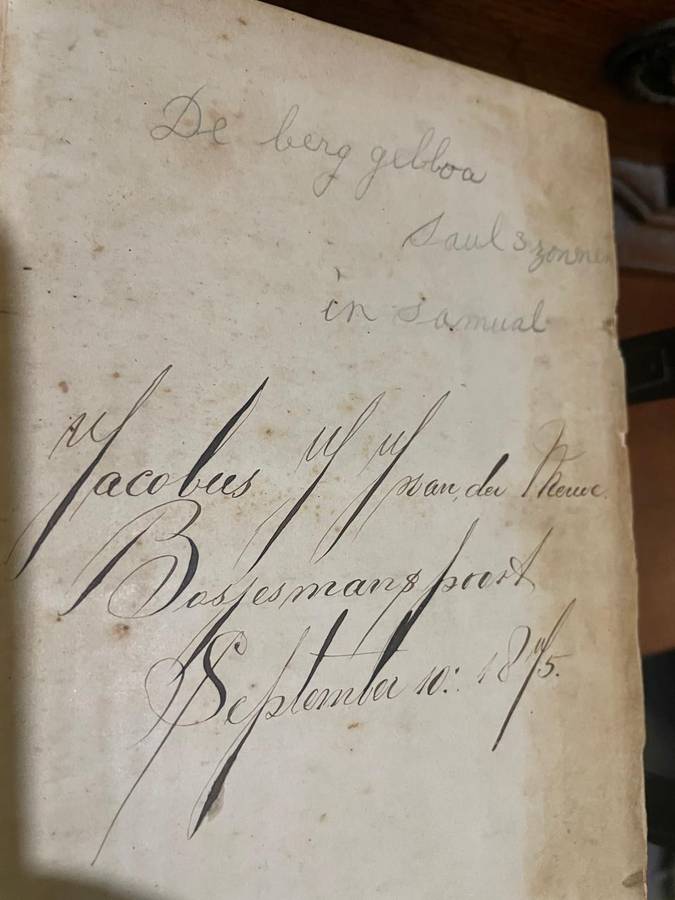 De berg gebboa
Saul 3 zonnen
in Samual
Jacobus J J van der Merwe.
Bosjesmanspoort
September 10: 1875.